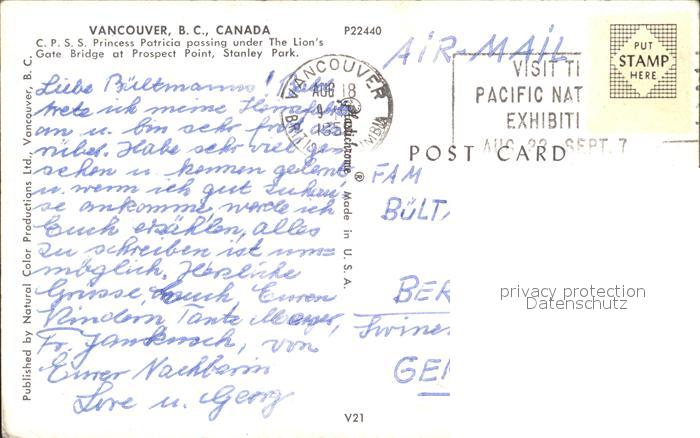 VANCOUVER, B. C., CANADA P22440
C. P. S. S. Princess Patricia passing under The Lion's
Gate Bridge at Prospect Point, Stanley Park.
AIR-MAIL
PUT
STAMP
HERE
VANCOUVER
AUG 18
BRITISH COLUMBIA
VISIT TI
PACIFIC NAT
EXHIBITI
AUG. 22 SEPT. 7
POST CARD
Liebe Bültmanns!
trete ich meine
an u. bin sehr froh
rüber. Habe sehr viel
sehen u. kennen gelernt
u. wenn ich gut zuhau-
se ankomme werde ich
Euch erzählen, alles
zu schreiben ist um=
möglich. Herzliche
Grüsse, auch Euren
Kindern Tante
Fr. von
Eurer Nachbarin
Lore u. Georg
FAM
BÜLT
BER
Swine
GE
Published by Natural Color Productions Ltd., Vancouver, B. C.
Plastichrome ® Made in U. S. A.
V21
privacy protection
Datenschutz